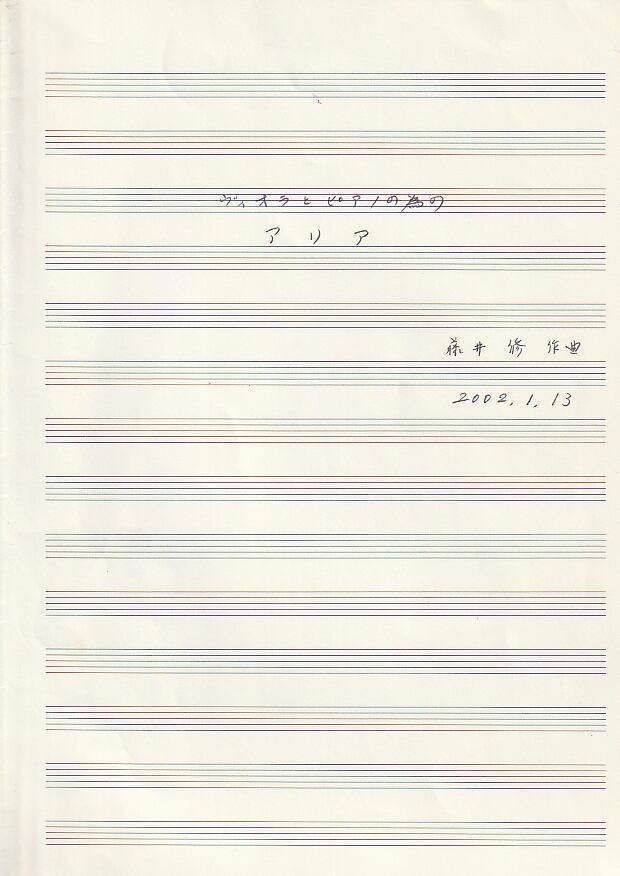 ヴィオラとピアノの為の
アリア
藤井 修 作曲
2002.1.13